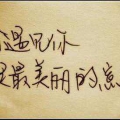 遇见你
是最美丽的意